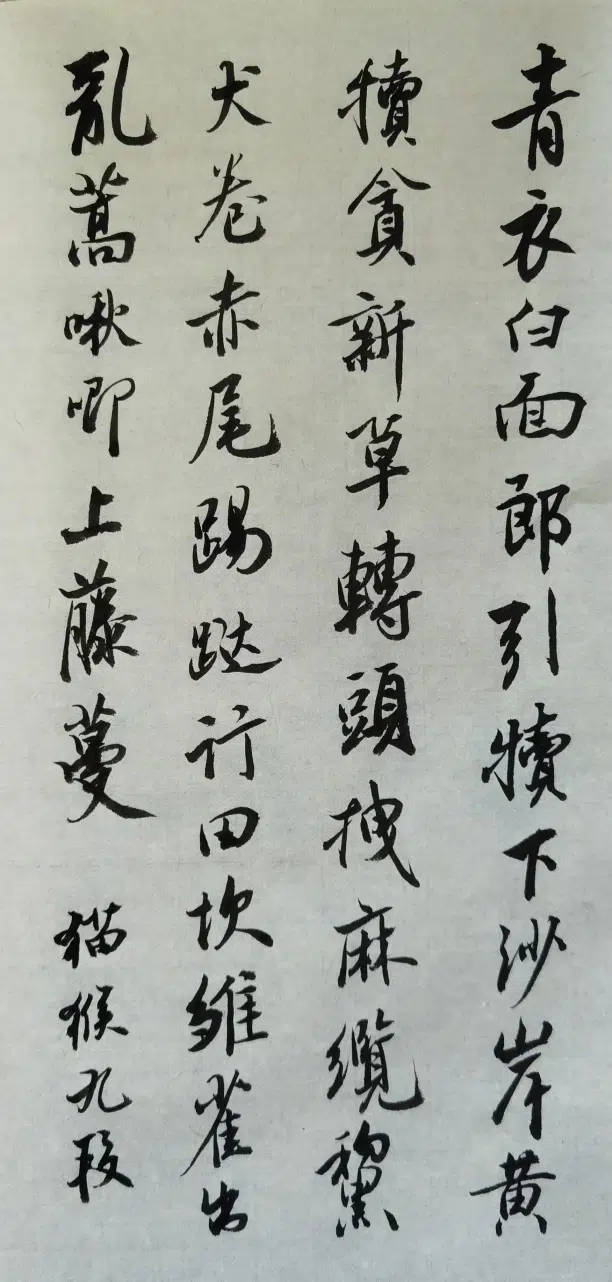 青衣白面郎引犢下沙岸黄
犢貪新草轉頭拽麻纜黧
犬卷赤尾踢躂行田坎雛雀出
亂蒿啾唧上藤蔓 猫猴九段